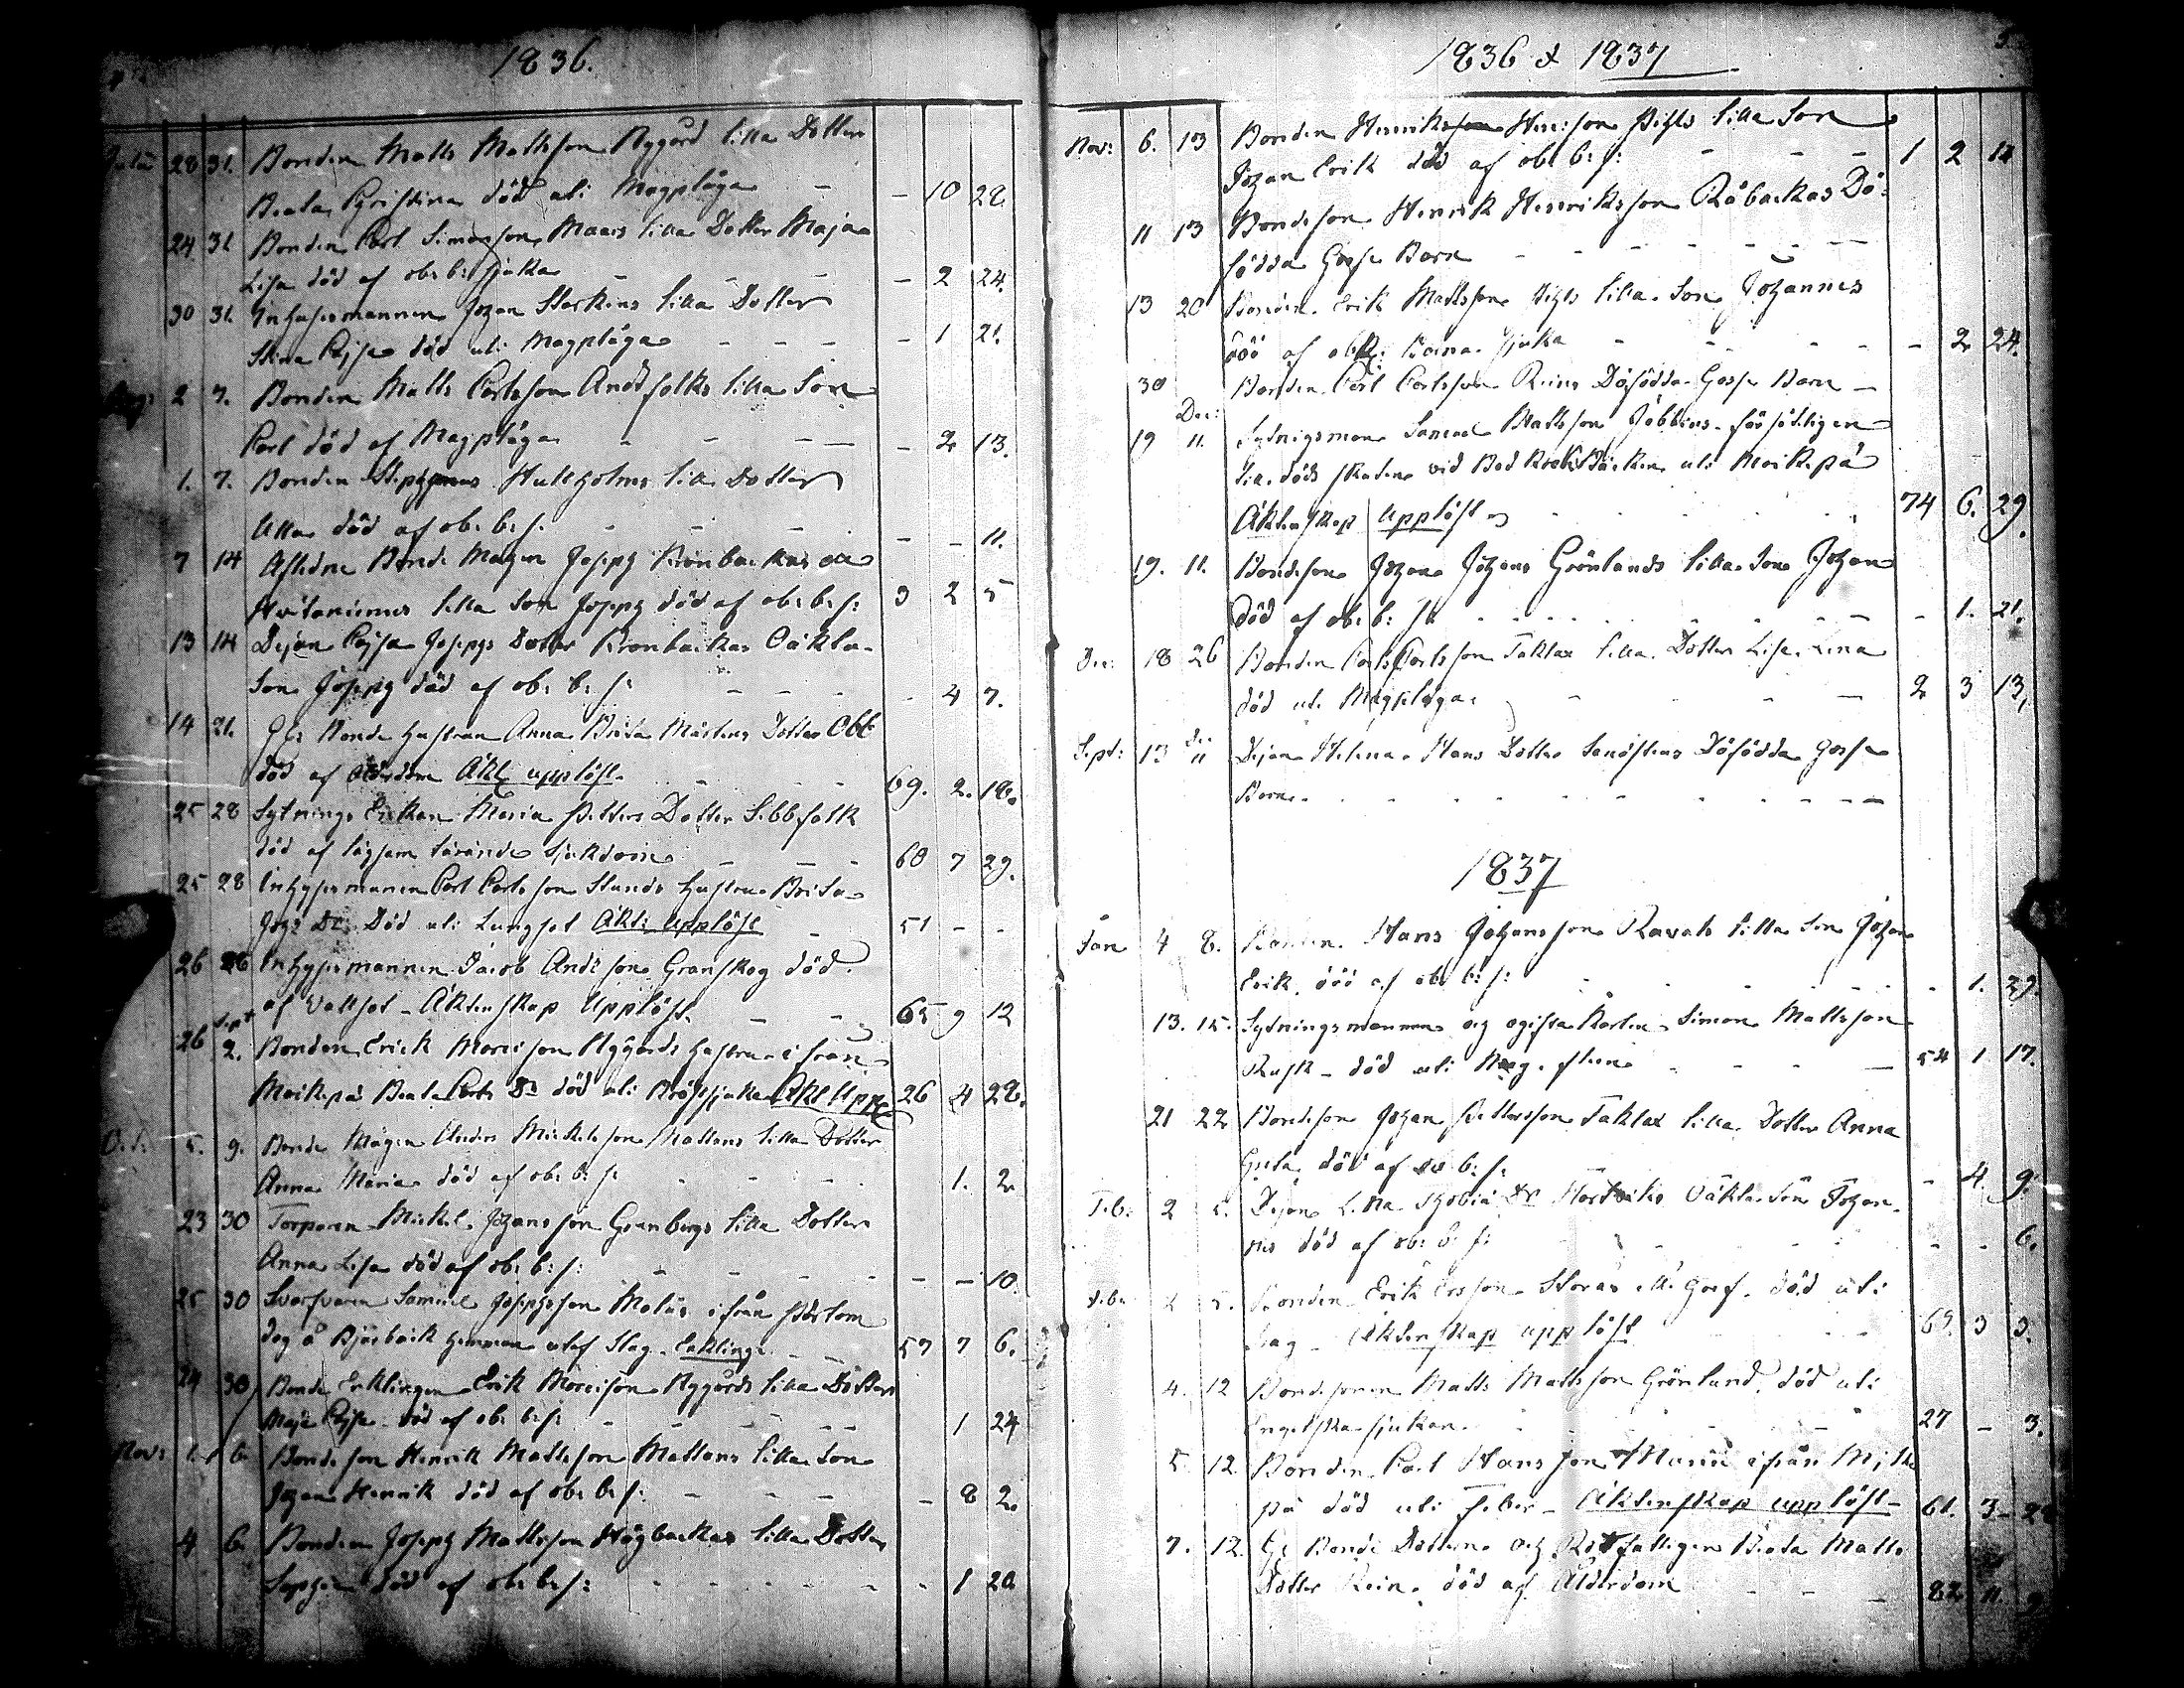 1836.
Julii 28 31. Bonden Matts Mattsson Nygård lilla Dotter
Beata Christina död uti Magplåga - - 10 28.
24 31 Bonden Carl Simonsson Maars lilla Dotter Maja
Lisa död af ob: b: sjuka - - - 2 24.
30 31. Inhysesmannen Johan Starkens lilla Dotter
Stina Cajsa död uti Magplåga - - - - 1 21.
Aug: 2 7. Bonden Matts Carlsson Andsfolks lilla Son
Carl död af Magplåga - - - - 2 13.
1. 7. Bonden Hullholms lilla Dotter
Ulla död af ob: b: s. - - - - - 11.
7 14 Aflidne Bonde Mågen Joseph Kronbackas
lilla Son Joseph död af ob: b: s: 3 2 5
13 14 Pigan Cajsa Josephs Dotter Kronbackas Oäkta
Son Joseph död af ob: b: s: - - - - 4 7.
14 21. Bonde Hustrun Anna Brita Mårtens Dotter
död af Ålderdom Äkt: upplöst - - - 69. 2. 18.
25 28 Sytnings Enkan Maria Petters Dotter Sebbfolk
död af tärande Sjukdom - - - 60 7 29.
25 28 Inhysesmannen Carl Carlsson Hustru Brita
Joh: Dr Död uti Lungsot Äkt: Upplöst - 51 - -
26 26 Inhysesmannen Jacob Andersson Granskog död
af Vattsot - Äktenskap Upplöst. - - 65 9 12
Sept
26 2. Bonden Erick Nygårds Hustru ifrån
Moikipä Beata Carls Dr död uti Bröstsjuka Äkt Uppl 26 4 28.
Oct: 5. 9. Bonde Mågen Anders Mickelsson Mattans lilla Dotter
Anna Maria död af ob: b: s: - - - 1. 2
23 30 Torparen Mickel Johansson Granbergs lilla Dotter
Anna Lisa död af ob: b: s: - - - - - - 10.
25 30 Svarfvaren Samuel Josephsson ifrån Portom
dog å Björbäck Hemman utaf Slag. Enkling. - - 57 7 6.
24 30 Bonde Enklingen Erik Nygårds lilla Dotter
Maja Cajsa död af ob: b: s: - - - - 1 24
Nov: 1. 6. Bonde son Henrik Mattsson Mattans lilla Son
Johan Henrik död af ob: b: s: - - - - 8 2.
4 6. Bonden Joseph Mattsson Högbackas lilla Dotter
Sophia död af ob: b: s: - - - - - 1 20
1836 & 1837
5
Nov: 6. 13 Bonden Henriksson Pihls lilla Son
Johan Erik död af ob: b: s: - - - 1 2 12
11 13 Bondeson Henrik Henriksson Råbackas Dö-
födda Gosse Barn - - - - - -
13 20 Bonden Erik Mattsson Pihls lilla Son Johannes
död af obk: Barna Sjuka - - - - - 2 24.
30 Bonden Carl Carlsson Reins Döfödda Gosse Barn -
Dec:
19 11. Sytningsman Samuel Mattsson Jåbbins
vid uti Moikipä
Äktenskap upplöst - - - - 74 6. 29.
19. 11. Bondeson Johan Johans Grönlands lilla Son Johan
död af ob: b: s: - - - - - 1. 21.
Dec: 18 26 Bonden Carl Carlsson Taklax lilla Dotter Lisa Lena
död uti Magplåga - - - 2 3 13,
Sept: 13 Dec 11 Pigan Helena Hans Dotter Sandstens Döfödda Gosse
Barn. - - - - - - - -
1837
Jan 4 8. Bonden Hans Johansson Ravals lilla Son Johan
Erik, död af ob: b: s: - - - - - 1. 29.
13. 15. Sytningsmannen og ogifta Karlen Simon Mattsson
Rusk - död uti - - - 54 1 17.
21 22 Bondeson Johan Pettersson Taklax lilla Dotter Anna
Greta död af ob: b: s: - - - - 4. 9.
Feb: 2 5. Pigan Lena Dr Oäkta Son Johan-
nes död af ob: b: s: - - - - - 6.
Feb: 2 5. Bonden Erik Ersson Storås död uti
Slag - Äktenskap upplöst - - - 69. 3 3.
4. 12 Bondesonen Matts Mattsson Grönlund. död uti
Engelska sjukan. - - - - 27 - 3.
5. 12. Bonden Carl Hansson ifrån Moiki
pä död uti Feber - Äktenskap upplöst - 61. 3 - 28
7. 12. Bonde Dotteren og Rotfattigen Beata Matts
Dotter Rein. död af Ålderdom - - - 82 11.